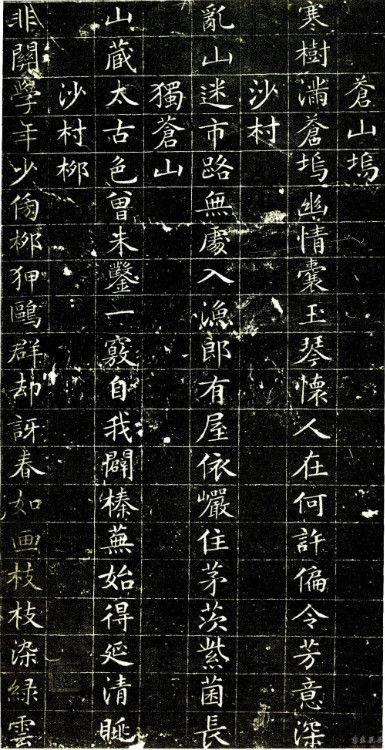 蒼山塢
寒樹滿蒼塢幽情囊玉琴懷人在何許偏令芳意深
沙村
亂山迷市路無處入漁郎有屋依巖住茅茨紫菌長
獨蒼山
山藏太古色曾未鑿一竅自我闢榛蕪始得延清眺
沙村柳
非關學年少傷柳狎鷗群却訝春如画枝枝染綠雲